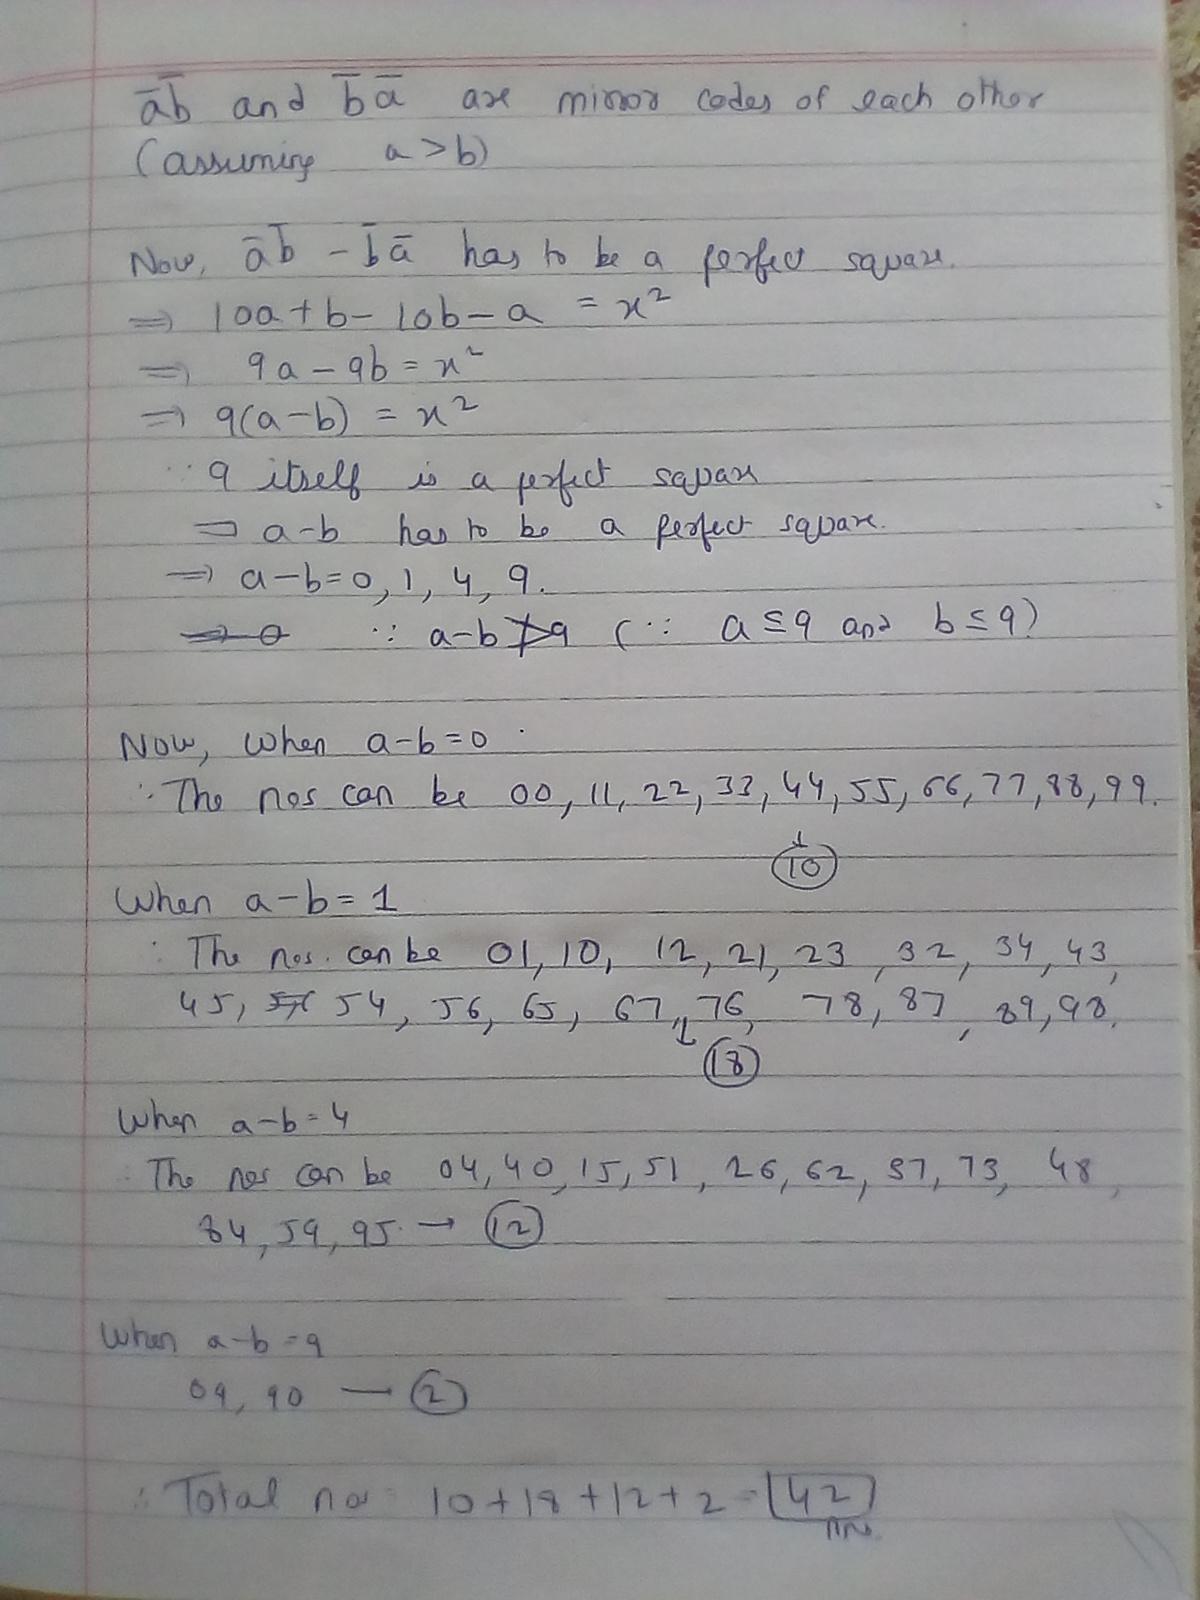 āb̄ and b̄ā are mirror codes of each other
(assuming a>b)
Now, āb̄ - b̄ā has to be a perfect square.
⇒ 10a+b-10b-a = x²
⇒ 9a-9b = x²
⇒ 9(a-b) = x²
∵ 9 itself is a perfect square
⇒ a-b has to be a perfect square.
⇒ a-b=0, 1, 4, 9.
∵ a-b ≯ 9 (∵ a≤9 and b≤9)
Now, When a-b=0
∴ The nos can be 00, 11, 22, 33, 44, 55, 66, 77, 88, 99.
↓
10
When a-b=1
∴ The nos. can be 01, 10, 12, 21, 23, 32, 34, 43,
45, 54, 56, 65, 67, 76, 78, 87, 89, 98.
↓ 18
When a-b=4
∴ The nos can be 04, 40, 15, 51, 26, 62, 37, 73, 48,
84, 59, 95. → 12
When a-b=9
09, 90 — 2
∴ Total no = 10+18+12+2 = 42
Ans.